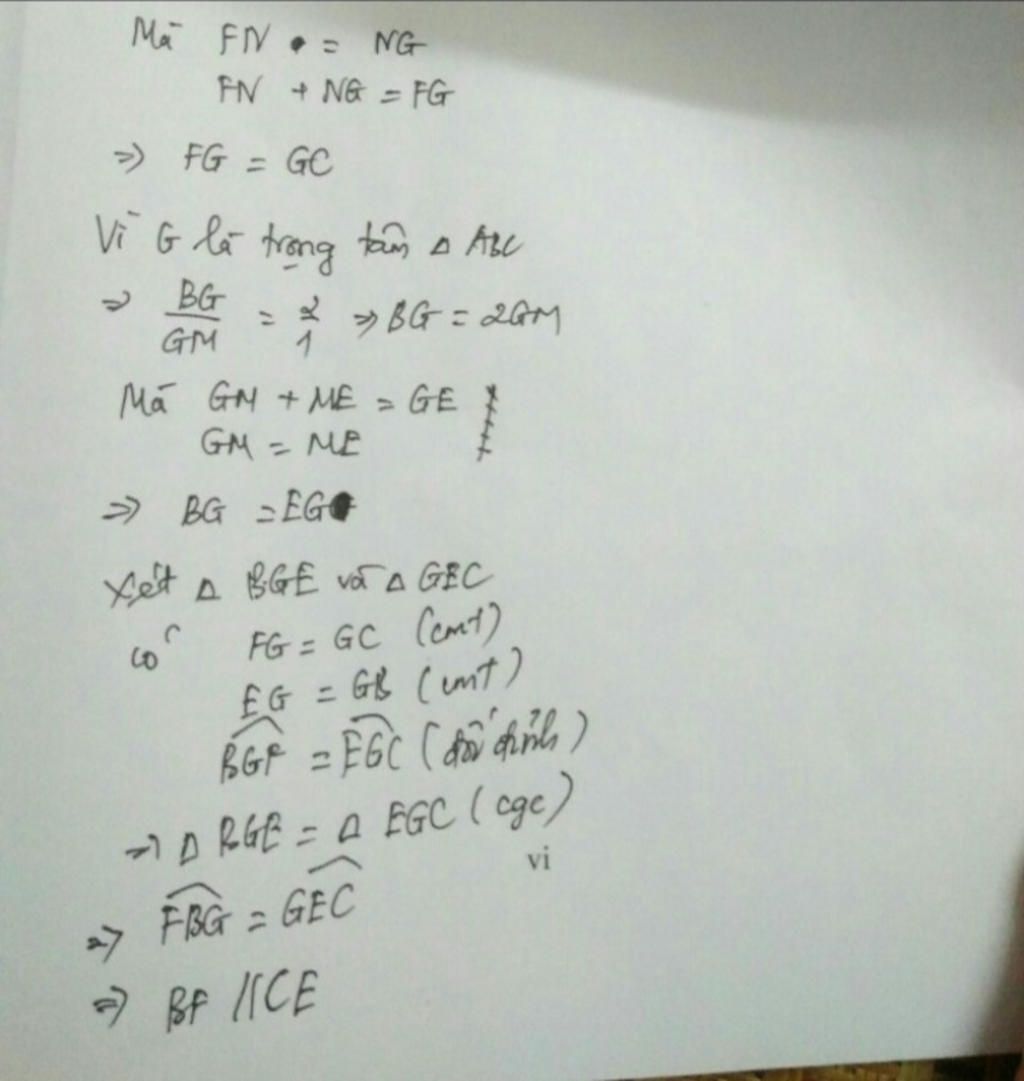 Mà FN = NG
FN + NG = FG
=> FG = GC
Vì G là trọng tâm △ ABC
=> BG/GM = 2/1 => BG = 2GM
Mà GM + ME = GE
GM = ME
=> BG = EG
Xét △ BGE và △ GEC
có FG = GC (cmt)
EG = GB (cmt)
BGF = EGC (đối đỉnh)
=> △ BGE = △ EGC (cgc)
vi
=> FBG = GEC
=> BF // CE